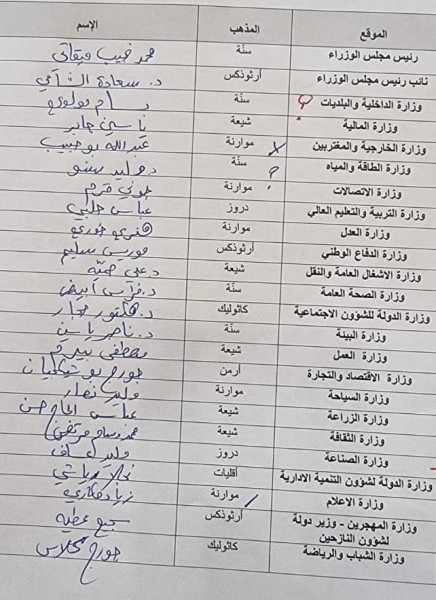 الموقع المذهب الإسم
رئيس مجلس الوزراء سنّة محمد نجيب ميقاتي
نائب رئيس مجلس الوزراء أرثوذكس د. سعادة الشامي
وزارة الداخلية والبلديات سنّة بسام مولوي
وزارة المالية شيعة ياسين جابر
وزارة الخارجية والمغتربين موارنة عبدالله بوحبيب
وزارة الطاقة والمياه سنّة د. وليد سنو
وزارة الاتصالات موارنة جوني قرم
وزارة التربية والتعليم العالي دروز عباس حلبي
وزارة العدل موارنة هنري خوري
وزارة الدفاع الوطني أرثوذكس موريس سليم
وزارة الاشغال العامة والنقل شيعة د. علي حميّه
وزارة الصحة العامة سنّة د. فراس أبيض
وزارة الدولة للشؤون الاجتماعية كاثوليك د. هكتور حجار
وزارة البيئة سنّة د. ناصر ياسين
وزارة العمل شيعة مصطفى بيرم
وزارة الاقتصاد والتجارة أرمن جورج بوشكيان
وزارة السياحة موارنة وليد نصار
وزارة الزراعة شيعة عباس الحاج حسن
وزارة الثقافة شيعة محمد وسام مرتضى
وزارة الصناعة دروز وليد عساف
وزارة الدولة لشؤون التنمية الادارية أقليات نجلا رياشي
وزارة الاعلام موارنة زياد مكاري
وزارة المهجرين - وزير دولة أرثوذكس سجيع عطيه
لشؤون النازحين
وزارة الشباب والرياضة كاثوليك جورج كلاس